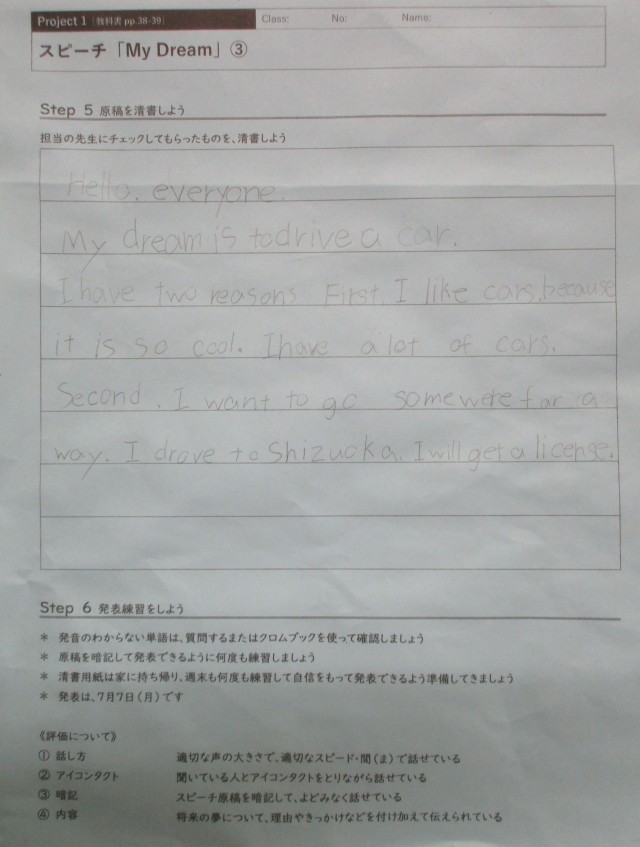 Project 1 [教科書 pp.38-39]
Class: No: Name:
スピーチ「My Dream」③
Step 5 原稿を清書しよう
担当の先生にチェックしてもらったものを、清書しよう
Hello. everyone.
My dream is to drive a car.
I have two reasons. First, I like cars, because
it is so cool. I have a lot of cars.
Second. I want to go somewere far a
way. I drove to Shizuoka. I will get a license.
Step 6 発表練習をしよう
* 発音のわからない単語は、質問するまたはクロムブックを使って確認しましょう
* 原稿を暗記して発表できるように何度も練習しましょう
* 清書用紙は家に持ち帰り、週末も何度も練習して自信をもって発表できるよう準備してきましょう
* 発表は、7月7日(月)です
《評価について》
① 話し方 適切な声の大きさで、適切なスピード・間(ま)で話せている
② アイコンタクト 聞いている人とアイコンタクトをとりながら話せている
③ 暗記 スピーチ原稿を暗記して、よどみなく話せている
④ 内容 将来の夢について、理由やきっかけなどを付け加えて伝えられている